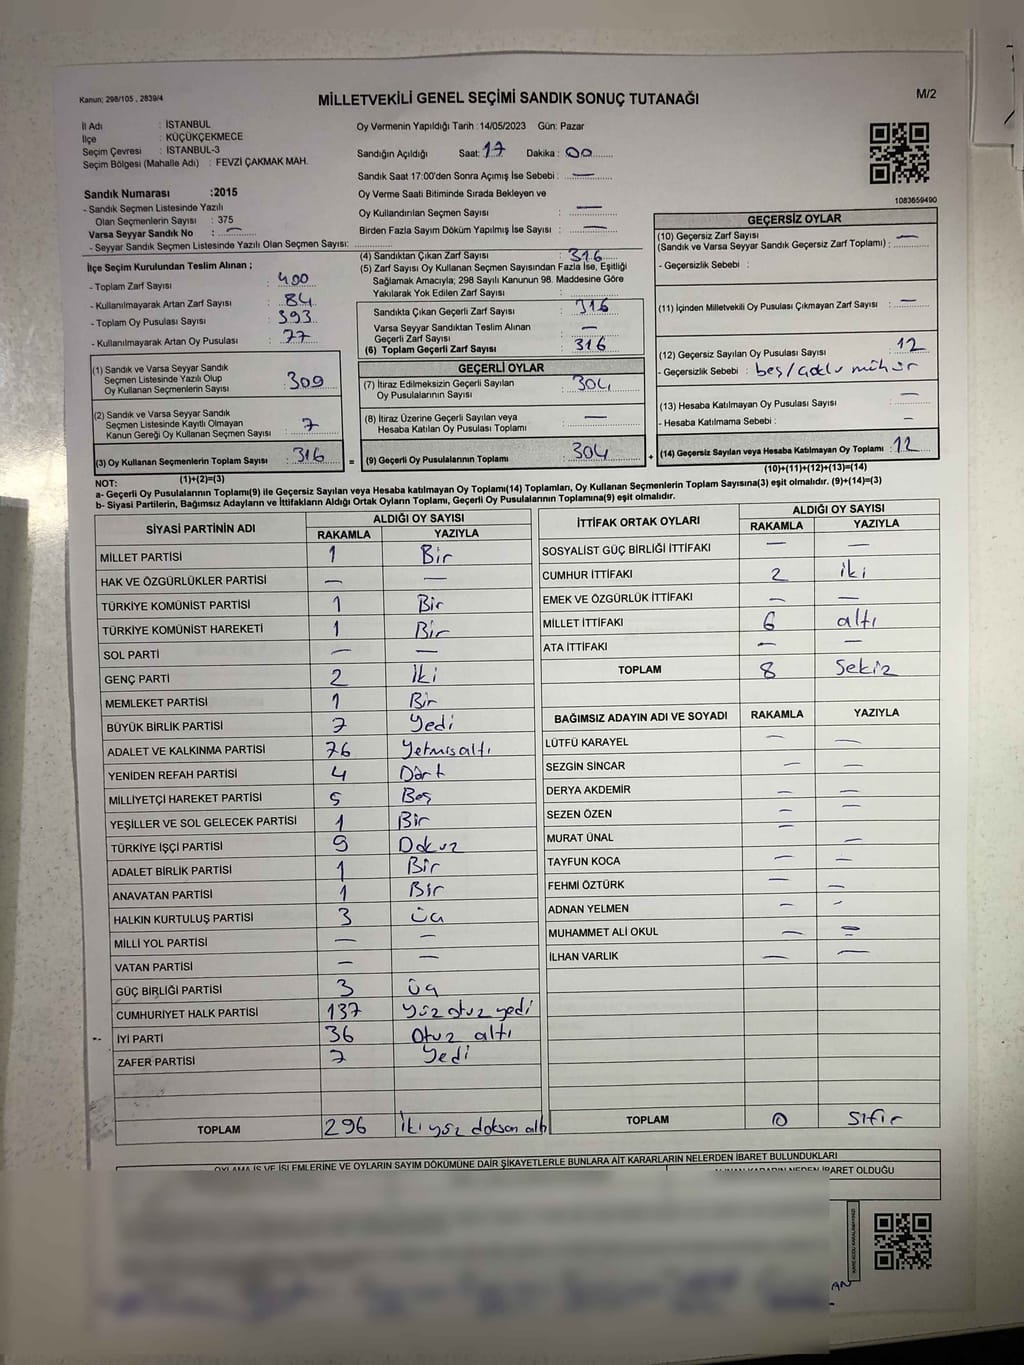 Kanun; 298/105 , 2839/4
MİLLETVEKİLİ GENEL SEÇİMİ SANDIK SONUÇ TUTANAĞI
M/2
İl Adı : İSTANBUL
İlçe : KÜÇÜKÇEKMECE
Seçim Çevresi : İSTANBUL-3
Seçim Bölgesi (Mahalle Adı) : FEVZİ ÇAKMAK MAH.
Sandık Numarası :2015
- Sandık Seçmen Listesinde Yazılı
Olan Seçmenlerin Sayısı : 375
Varsa Seyyar Sandık No : —
- Seyyar Sandık Seçmen Listesinde Yazılı Olan Seçmen Sayısı:
Oy Vermenin Yapıldığı Tarih :14/05/2023 Gün: Pazar
Sandığın Açıldığı Saat: 17 Dakika : 00
Sandık Saat 17:00'den Sonra Açımış İse Sebebi : —
Oy Verme Saati Bitiminde Sırada Bekleyen ve
Oy Kullandırılan Seçmen Sayısı : —
Birden Fazla Sayım Döküm Yapılmış İse Sayısı : —
1083659490
İlçe Seçim Kurulundan Teslim Alınan ;
- Toplam Zarf Sayısı : 400
- Kullanılmayarak Artan Zarf Sayısı : 84
- Toplam Oy Pusulası Sayısı : 393
- Kullanılmayarak Artan Oy Pusulası : 77
(1) Sandık ve Varsa Seyyar Sandık
Seçmen Listesinde Yazılı Olup
Oy Kullanan Seçmenlerin Sayısı : 309
(2) Sandık ve Varsa Seyyar Sandık
Seçmen Listesinde Kayıtlı Olmayan
Kanun Gereği Oy Kullanan Seçmen Sayısı : 7
(3) Oy Kullanan Seçmenlerin Toplam Sayısı : 316
(1)+(2)=(3)
(4) Sandıktan Çıkan Zarf Sayısı : 316
(5) Zarf Sayısı Oy Kullanan Seçmen Sayısından Fazla İse, Eşitliği
Sağlamak Amacıyla; 298 Sayılı Kanunun 98. Maddesine Göre
Yakılarak Yok Edilen Zarf Sayısı :
Sandıkta Çıkan Geçerli Zarf Sayısı : 316
Varsa Seyyar Sandıktan Teslim Alınan
Geçerli Zarf Sayısı : —
(6) Toplam Geçerli Zarf Sayısı : 316
GEÇERLİ OYLAR
(7) İtiraz Edilmeksizin Geçerli Sayılan
Oy Pusulalarının Sayısı : 304
(8) İtiraz Üzerine Geçerli Sayılan veya
Hesaba Katılan Oy Pusulası Toplamı : —
= (9) Geçerli Oy Pusulalarının Toplamı : 304
GEÇERSİZ OYLAR
(10) Geçersiz Zarf Sayısı
(Sandık ve Varsa Seyyar Sandık Geçersiz Zarf Toplamı) : —
- Geçersizlik Sebebi :
(11) İçinden Milletvekili Oy Pusulası Çıkmayan Zarf Sayısı : —
(12) Geçersiz Sayılan Oy Pusulası Sayısı : 12
- Geçersizlik Sebebi : boş/çoklu mühür
(13) Hesaba Katılmayan Oy Pusulası Sayısı : —
- Hesaba Katılmama Sebebi : —
+ (14) Geçersiz Sayılan veya Hesaba Katılmayan Oy Toplamı : 12
(10)+(11)+(12)+(13)=(14)
NOT:
a- Geçerli Oy Pusulalarının Toplamı(9) ile Geçersiz Sayılan veya Hesaba katılmayan Oy Toplamı(14) Toplamları, Oy Kullanan Seçmenlerin Toplam Sayısına(3) eşit olmalıdır. (9)+(14)=(3)
b- Siyasi Partilerin, Bağımsız Adayların ve İttifakların Aldığı Ortak Oyların Toplamı, Geçerli Oy Pusulalarının Toplamına(9) eşit olmalıdır.
SİYASİ PARTİNİN ADI ALDIĞI OY SAYISI
RAKAMLA YAZIYLA
MİLLET PARTİSİ 1 Bir
HAK VE ÖZGÜRLÜKLER PARTİSİ — —
TÜRKİYE KOMÜNİST PARTİSİ 1 Bir
TÜRKİYE KOMÜNİST HAREKETİ 1 Bir
SOL PARTİ — —
GENÇ PARTİ 2 İki
MEMLEKET PARTİSİ 1 Bir
BÜYÜK BİRLİK PARTİSİ 7 Yedi
ADALET VE KALKINMA PARTİSİ 76 Yetmişaltı
YENİDEN REFAH PARTİSİ 4 Dört
MİLLİYETÇİ HAREKET PARTİSİ 5 Beş
YEŞİLLER VE SOL GELECEK PARTİSİ 1 Bir
TÜRKİYE İŞÇİ PARTİSİ 9 Dokuz
ADALET BİRLİK PARTİSİ 1 Bir
ANAVATAN PARTİSİ 1 Bir
HALKIN KURTULUŞ PARTİSİ 3 üç
MİLLİ YOL PARTİSİ — —
VATAN PARTİSİ — —
GÜÇ BİRLİĞİ PARTİSİ 3 üç
CUMHURİYET HALK PARTİSİ 137 Yüz otuz yedi
İYİ PARTİ 36 Otuz altı
ZAFER PARTİSİ 7 Yedi
TOPLAM 296 İki yüz doksan altı
İTTİFAK ORTAK OYLARI ALDIĞI OY SAYISI
RAKAMLA YAZIYLA
SOSYALİST GÜÇ BİRLİĞİ İTTİFAKI — —
CUMHUR İTTİFAKI 2 iki
EMEK VE ÖZGÜRLÜK İTTİFAKI — —
MİLLET İTTİFAKI 6 altı
ATA İTTİFAKI — —
TOPLAM 8 Sekiz
BAĞIMSIZ ADAYIN ADI VE SOYADI RAKAMLA YAZIYLA
LÜTFÜ KARAYEL — —
SEZGİN SİNCAR — —
DERYA AKDEMİR — —
SEZEN ÖZEN — —
MURAT ÜNAL — —
TAYFUN KOCA — —
FEHMİ ÖZTÜRK — —
ADNAN YELMEN — —
MUHAMMET ALİ OKUL — =
İLHAN VARLIK — —
TOPLAM 0 Sıfır
OYLAMA İŞ VE İŞLEMLERİNE VE OYLARIN SAYIM DÖKÜMÜNE DAİR ŞİKAYETLERLE BUNLARA AİT KARARLARIN NELERDEN İBARET BULUNDUKLARI
ALINAN KARARIN NEDEN İBARET OLDUĞU
AN